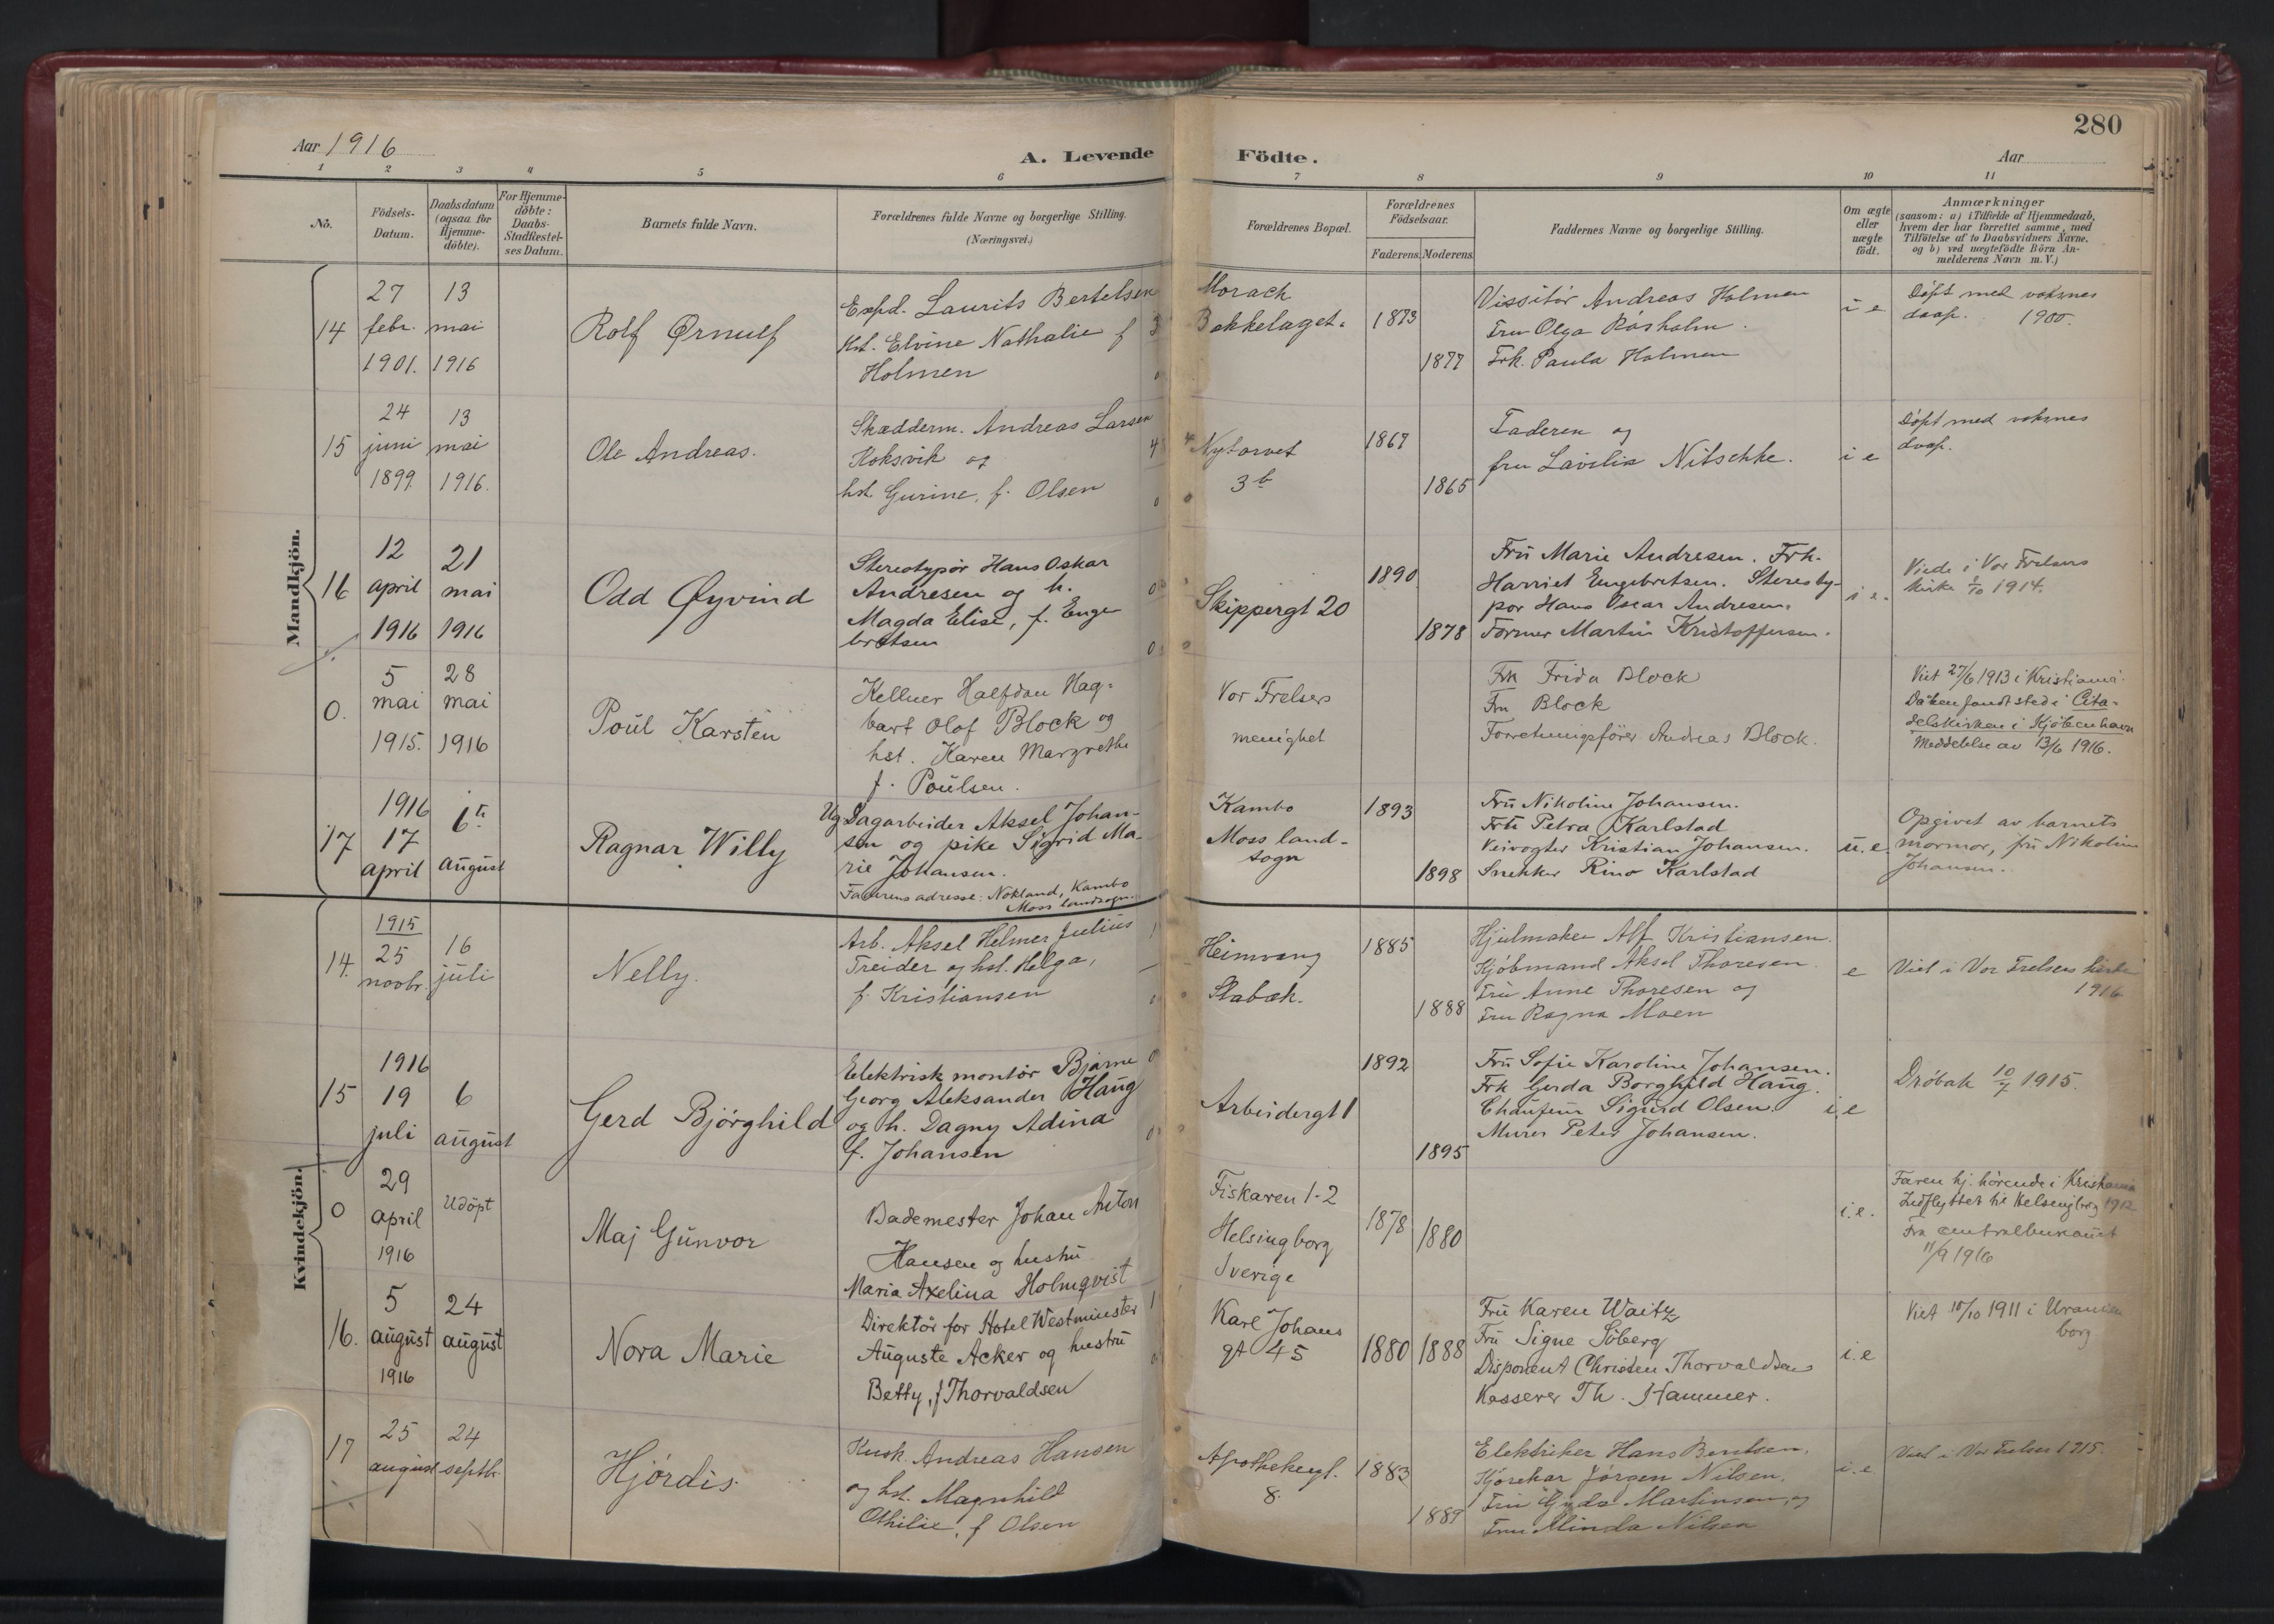 280
Aar 1916
A. Levende Födte.
Aar
1 2 3 4 5 6 7 8 9 10 11
No.
Födsels-Datum.
Daabsdatum (ogsaa for Hjemme-döbte).
For Hjemme-döbte: Daabs-Stadfæstel-ses Datum.
Barnets fulde Navn.
Forældrenes fulde Navne og borgerlige Stilling.
(Næringsvei.)
Forældrenes Bopæl.
Forældrenes Födselsaar.
Faderens. Moderens.
Faddernes Navne og borgerlige Stilling.
Om ægte eller uægte födt.
Anmærkninger
(saasom: a) i Tilfælde af Hjemmedaab, hvem der har forrettet samme, med Tilföielse af to Daabsvidners Navne, og b) ved uægtefödte Börn An-melderens Navn m. V.)
Mandkjön.
14
27 febr. 1901.
13 mai 1916
Rolf Ørnulf
Exped. Laurits Bertelsen
hst. Elvine Nathalie f
Holmen
Bakkelaget.
1873
1877
Vissitör Andreas Holmen
Fru Olga Rösholm.
Frk. Paula Holmen
i e
Döpt med voksnes
daap. 1900.
15
24 juni 1899
13 mai 1916.
Ole Andreas.
Skædderm. Andreas Larsen
Hoksvik og
hst. Gurine, f. Olsen
Nytorvet
3 b
1867
1865
Faderen og
fru Lavilia Nitschke.
i e
Döpt med voksnes
daap.
16
12 april 1916
21 mai 1916
Odd Øyvind
Stereotypör Hans Oskar
Andresen og h.
Magda Elise, f. Enge
bretsen
Skippergt 20
1890
1878
Fru Marie Andresen. Frk.
Harriet Engebretsen. Stereoty-
pör Hans Oscar Andresen.
Former Martin Kristoffersen.
i e.
Viede i Vor Frelsers
kirke 1914.
0.
5 mai 1915.
28 mai 1916
Poul Karsten
Kellner Halfdan Hag-
bart Olof Block og
hst. Karen Margrethe
f. Poulsen.
Vor Frelsers
menighet
Frk Frida Block
Fru Block
Forretningsförer Andreas Block.
Viet 27/6 1913 i Kristiania.
Dåben fandt sted i Cita-
delskirken i Kjöbenhavn
Meddelelse av 13/6 1916.
17
1916 17 april
6te august
Ragnar Willy
Ug Dagarbeider Aksel Johan-
sen og pike Sigrid Ma-
rie Johansen.
Faderens adresse: Nökland, Kambo
Moss landsogn.
Kambo
Moss land-
sogn
1893
1898
Fru Nikoline Johansen.
Fru Petra Karlstad
Veivogter Kristian Johansen.
Snekker Rino Karlstad
u. e.
Opgivet av barnets
mormor, fru Nikoline
Johansen.
Kvindekjön.
14.
1915 25 novbr.
16 juli
Nelly.
Arb. Aksel Helmer Julius
Treider og hst. Helga,
f. Kristiansen
Heimvang
Stabæk.
1885
1888
Hjulmaker Alf Kristiansen.
Kjöbmand Aksel Thoresen.
Fru Anne Thoresen og
Fru Ragna Moen
e
Viet i Vor Frelsers kirke
1916
15
1916 19 juli
6 august
Gerd Bjørghild
Elektrisk montör Bjarne
Georg Aleksander Haug
og h. Dagny Adina
f. Johansen
Arbeidergt 1
1892
1895
Fru Sofie Karoline Johansen.
Frk Gerda Borghild Haug.
Chauför Sigurd Olsen.
Murer Peter Johansen.
i. e
Dröbak 10/7 1915.
0
29 april 1916
Udöpt
Maj Gunvor
Bademester Johan Anton
Hansen og hustru
Maria Axelina Holmqvist
Fiskaren 1-2
Helsingborg
Sverige
1878 1880
i. e.
Faren hj. hörende i Kristiania
Indflyttet til Helsingborg 1912
Fra centralbureauet
11/9 1916
16.
5 august 1916
24 august
Nora Marie
Direktör for Hotel Westminster
Auguste Acker og hustru
Betty, f Thorvaldsen
Karl Johans
gt 45
1880 1888
Fru Karen Waitz
Fru Signe Söberg
Disponent Christen Thorvaldsen
Kasserer Th. Hammer.
i. e
Viet 15/10 1911 i Uranien
borg
17
25 august
24 septbr.
Hjördis.
Kusk. Andreas Hansen
og hst. Magnhild
Othilie, f Olsen
Apothekergt.
8.
1883
1889
Elektriker Hans Bentsen.
Kjörekar Jörgen Nilsen.
Fru Gyda Martinsen, og
Fru Minda Nilsen
i. e
Viet i Vor Frelser 1915.